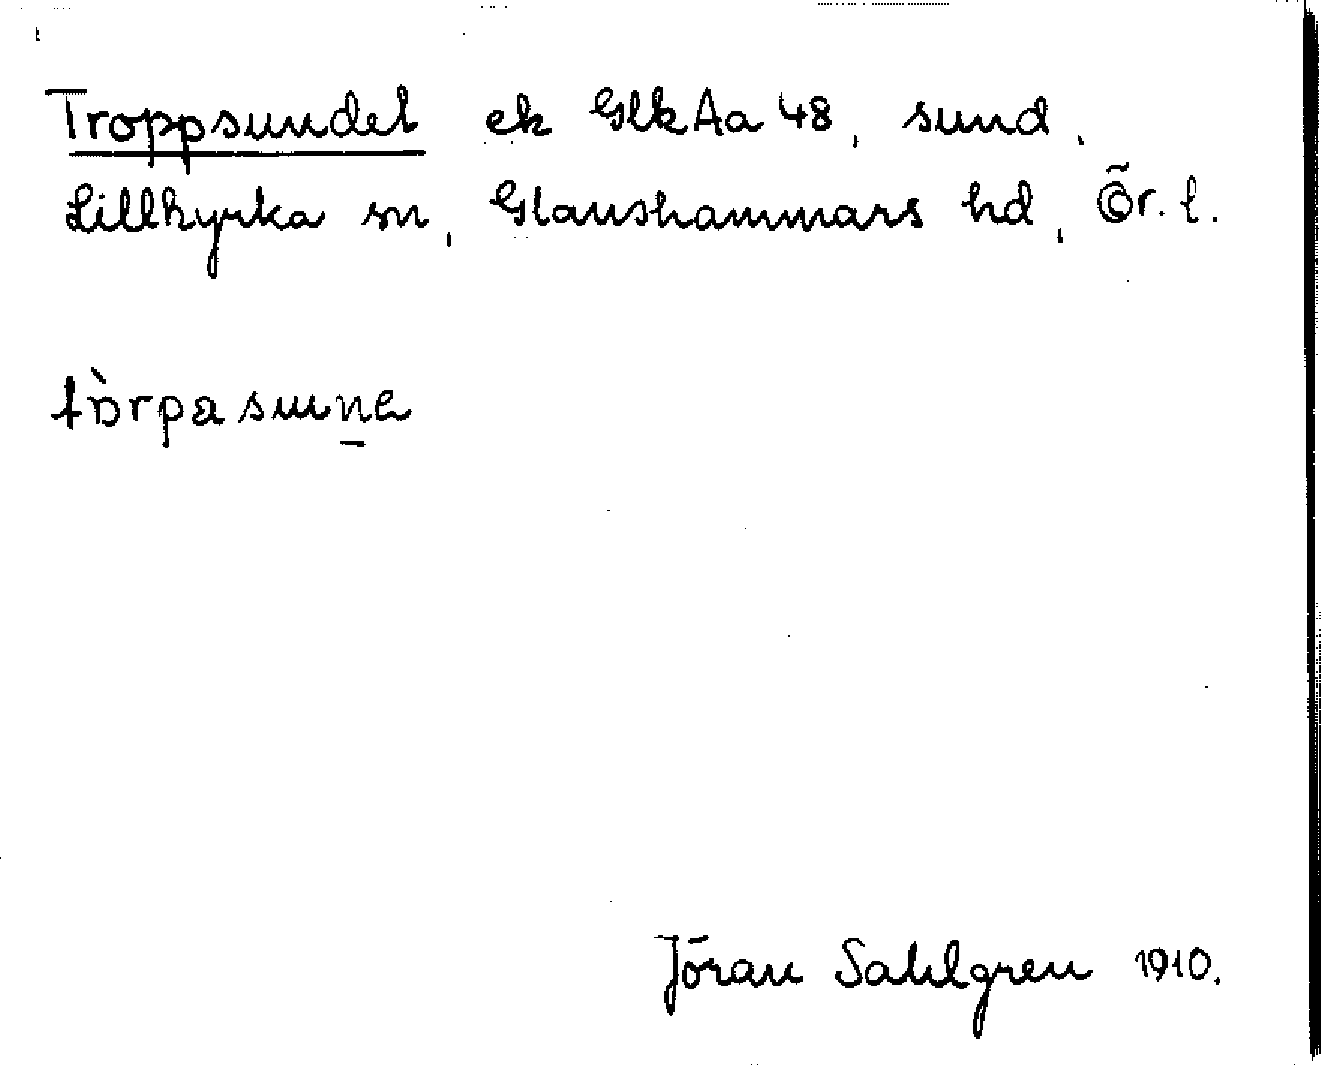 Troppsundet ek GlkAa 48, sund,
Lillkyrka sn, Glanshammars hd, Ör. l.
tòrpasune
Jöran Sahlgren 1910.